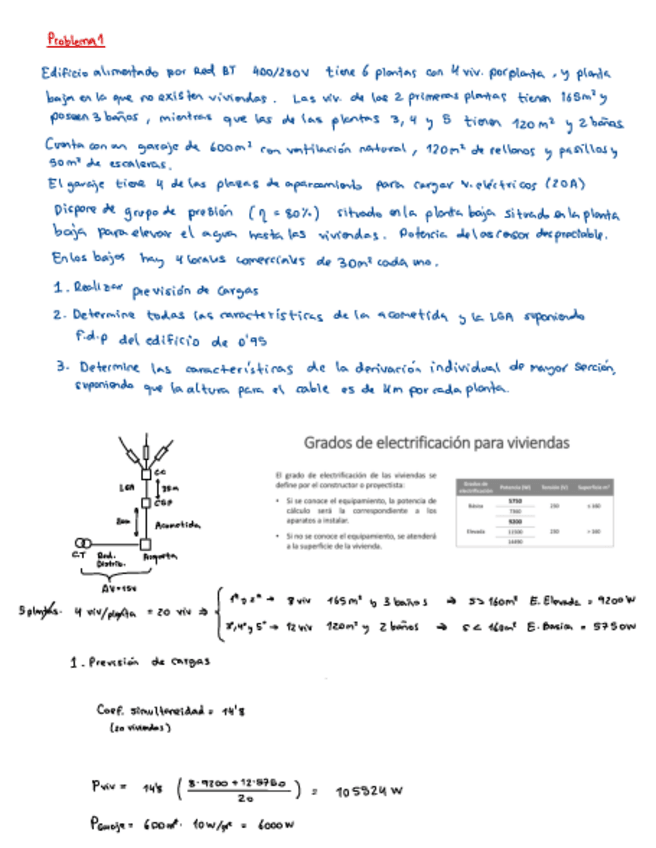 Problema 1
Edificio alimentado por Red BT 400/230V tiene 6 plantas con 4 viv. por planta, y planta
baja en la que no existen viviendas. Las viv. de las 2 primeras plantas tienen 165m² y
poseen 3 baños, mientras que las de las plantas 3, 4 y 5 tienen 120m² y 2 baños
Cuenta con un garaje de 600m² con ventilación natural, 120m² de rellanos y pasillos y
50m² de escaleras.
El garaje tiene 4 de las plazas de aparcamiento para cargar v. eléctricos (20A)
Dispone de grupo de presión (η = 80%) situado en la planta baja situado en la planta
baja para elevar el agua hasta las viviendas. Potencia del ascensor despreciable.
En los bajos hay 4 locales comerciales de 30m² cada uno.
1. Realizar previsión de cargas
2. Determine todas las características de la acometida y la LGA suponiendo
f.d.p del edificio de 0'95
3. Determine las características de la derivación individual de mayor sección,
suponiendo que la altura para el cable es de 4m por cada planta.
Grados de electrificación para viviendas
El grado de electrificación de las viviendas se
define por el constructor o proyectista:
• Si se conoce el equipamiento, la potencia de
cálculo será la correspondiente a los
aparatos a instalar.
• Si no se conoce el equipamiento, se atenderá
a la superficie de la vivienda.
Grados de electrificación Potencia (W) Tensión (V) Superficie m²
Básica 5750 7360 230 ≤ 160
Elevada 9200 11500 14490 230 > 160
CC
LGA
CGP
Acometida
CT Red. Distrib. Arqueta
ΔV=15V
5 plantas. 4 viv/planta = 20 viv ⇒
1ª y 2ª → 8 viv 165m² y 3 baños ⇒ S > 160m² E. Elevada = 9200W
3ª, 4ª y 5ª → 12 viv 120m² y 2 baños → S < 160m² E. Basica = 5750W
1. Previsión de cargas
Coef. simultaneidad = 14'8
(20 viviendas)
Pviv = 14'8 ( 8·9200 + 12·5750 / 20 ) = 105524 W
Pgaraje = 600m²· 10W/m² = 6000W